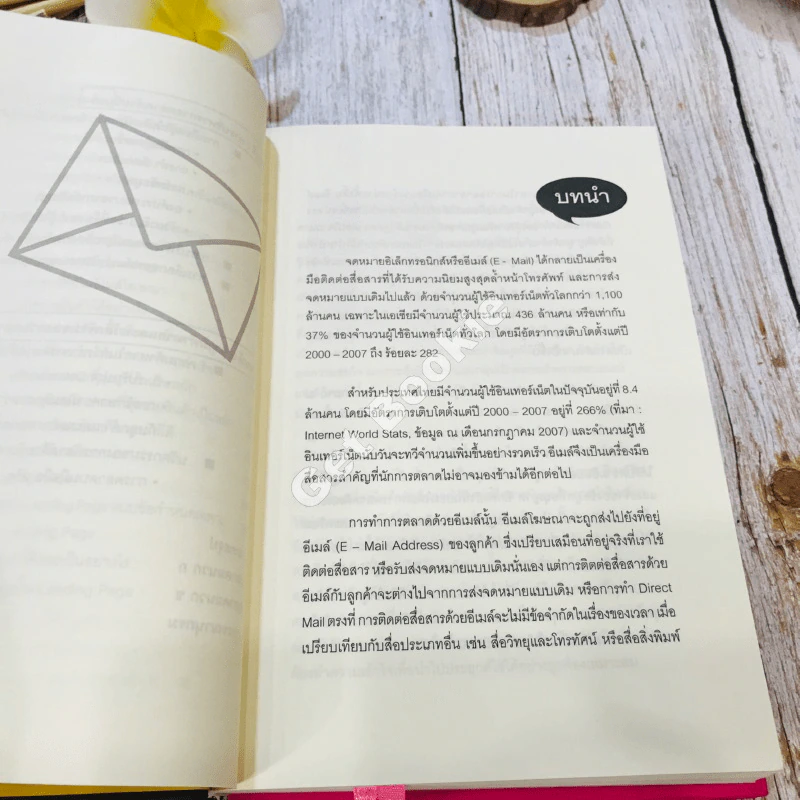 บทนำ
จดหมายอิเล็กทรอนิกส์หรืออีเมล์ (E – Mail) ได้กลายเป็นเครื่อง
มือติดต่อสื่อสารที่ได้รับความนิยมสูงสุดล้ำหน้าโทรศัพท์ และการส่ง
จดหมายแบบเดิมไปแล้ว ด้วยจำนวนผู้ใช้อินเทอร์เน็ตทั่วโลกกว่า 1,100
ล้านคน เฉพาะในเอเชียมีจำนวนผู้ใช้ประมาณ 436 ล้านคน หรือเท่ากับ
37% ของจำนวนผู้ใช้อินเทอร์เน็ตทั่วโลก โดยมีอัตราการเติบโตตั้งแต่ปี
2000 – 2007 ถึง ร้อยละ 282
สำหรับประเทศไทยมีจำนวนผู้ใช้อินเทอร์เน็ตในปัจจุบันอยู่ที่ 8.4
ล้านคน โดยมีอัตราการเติบโตตั้งแต่ปี 2000 – 2007 อยู่ที่ 266% (ที่มา :
Internet World Stats, ข้อมูล ณ เดือนกรกฎาคม 2007) และจำนวนผู้ใช้
อินเทอร์เน็ตนับวันจะทวีจำนวนเพิ่มขึ้นอย่างรวดเร็ว อีเมล์จึงเป็นเครื่องมือ
สื่อสารสำคัญที่นักการตลาดไม่อาจมองข้ามได้อีกต่อไป
การทำการตลาดด้วยอีเมล์นั้น อีเมล์โฆษณาจะถูกส่งไปยังที่อยู่
อีเมล์ (E – Mail Address) ของลูกค้า ซึ่งเปรียบเสมือนที่อยู่จริงที่เราใช้
ติดต่อสื่อสาร หรือรับส่งจดหมายแบบเดิมนั่นเอง แต่การติดต่อสื่อสารด้วย
อีเมล์กับลูกค้าจะต่างไปจากการส่งจดหมายแบบเดิม หรือการทำ Direct
Mail ตรงที่ การติดต่อสื่อสารด้วยอีเมล์จะไม่มีข้อจำกัดในเรื่องของเวลา เมื่อ
เปรียบเทียบกับสื่อประเภทอื่น เช่น สื่อวิทยุและโทรทัศน์ หรือสื่อสิ่งพิมพ์
Get Bookie